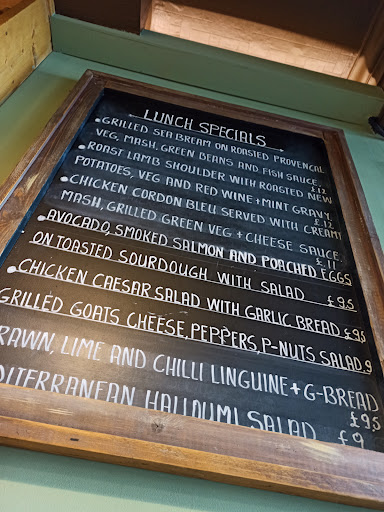 LUNCH SPECIALS
• GRILLED SEA BREAM ON ROASTED PROVENCAL
VEG, MASH, GREEN BEANS AND FISH SAUCE. £12
• ROAST LAMB SHOULDER WITH ROASTED NEW
POTATOES, VEG AND RED WINE + MINT GRAVY. £12
• CHICKEN CORDON BLEU SERVED WITH CREAMY
MASH, GRILLED GREEN VEG + CHEESE SAUCE. £11
• AVOCADO, SMOKED SALMON AND POACHED EGGS
ON TOASTED SOURDOUGH WITH SALAD £9,5
• CHICKEN CAESAR SALAD WITH GARLIC BREAD £9,5
GRILLED GOATS CHEESE, PEPPERS, P-NUTS SALAD 9
RAWN, LIME AND CHILLI LINGUINE + G-BREAD
£9,5
DITERRANEAN HALLOUMI SALAD £9